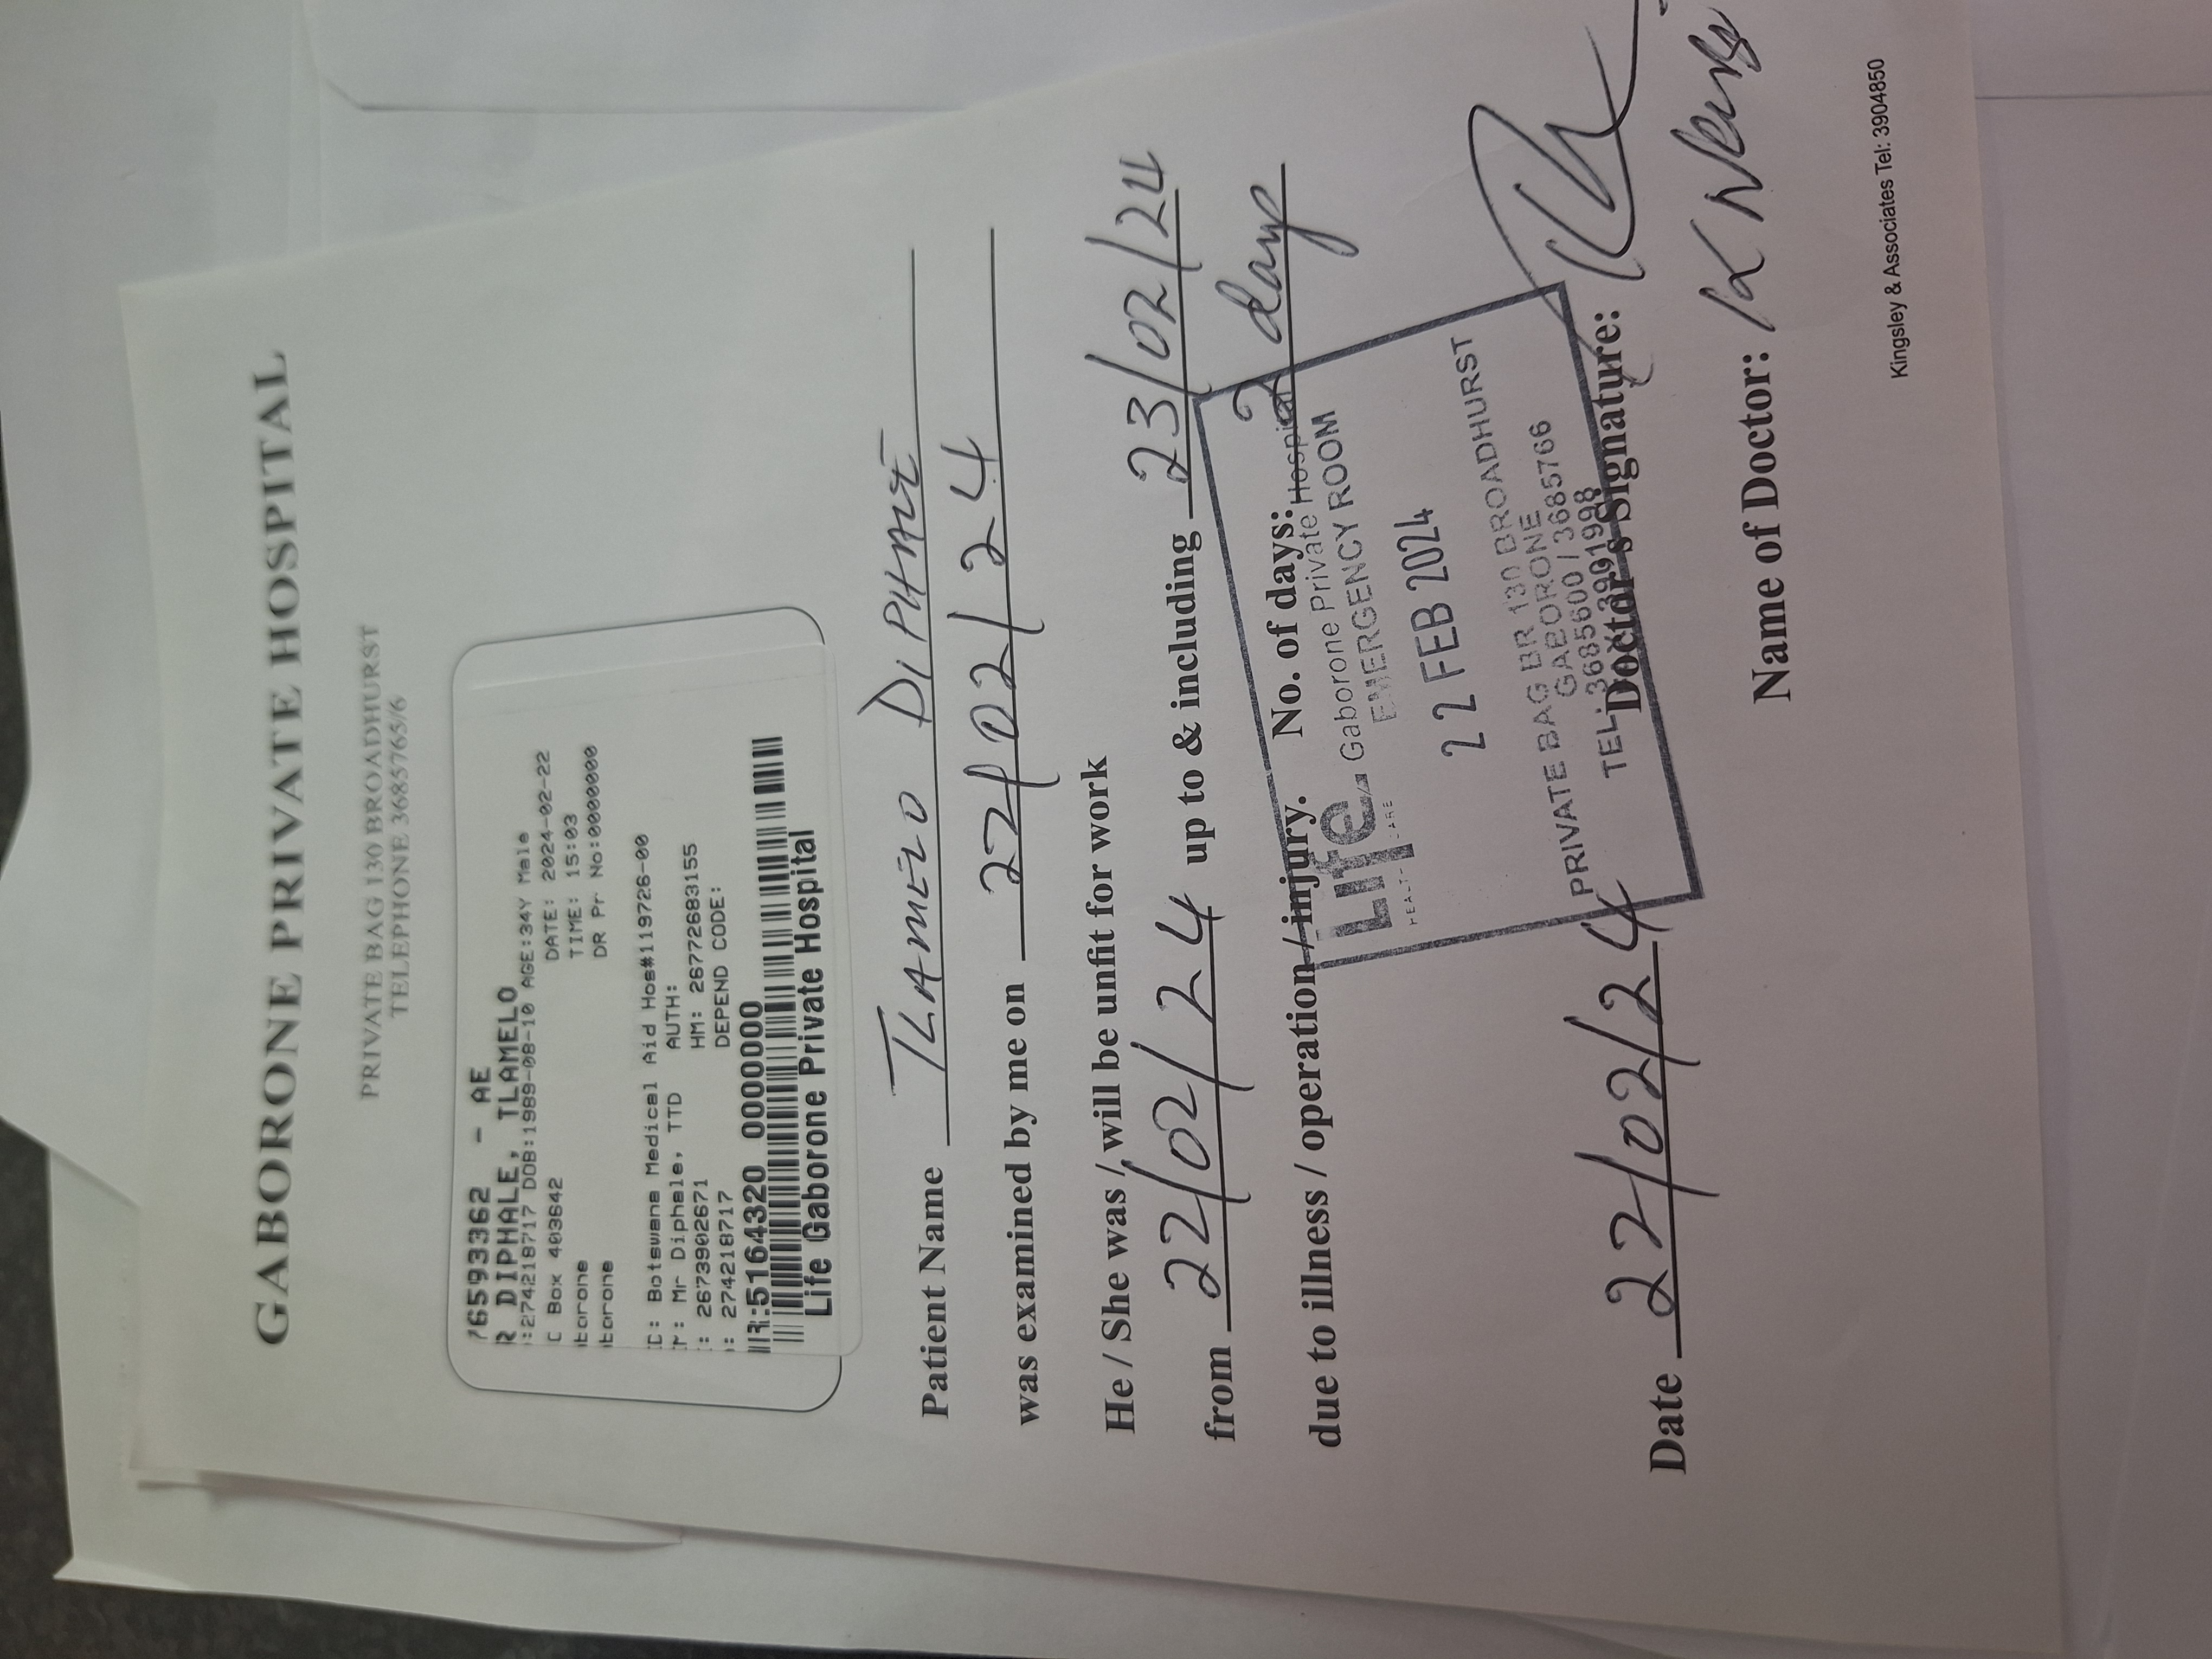 GABORONE PRIVATE HOSPITAL
PRIVATE BAG 130 BROADHURST
TELEPHONE 3685765/6
76593362 - AE
R DIPHALE, TLAMELO
:274218717 DOB:1989-08-10 AGE:34Y Male
C Box 403642 DATE: 2024-02-22
borone TIME: 15:03
borone DR Pr No:0000000
: Botswana Medical Aid Hos#119726-00
: Mr Diphale, TTD AUTH:
: 2673902671 HM: 26772683155
: 274218717 DEPEND CODE:
:5164320 0000000
Life Gaborone Private Hospital
Patient Name TLAMELO DIPHALE
was examined by me on 22/02/24
He / She was / will be unfit for work
from 22/02/24 up to & including 23/02/24
due to illness / operation / injury. No. of days: 2 days
Life Gaborone Private Hospital
HEALTH CARE EMERGENCY ROOM
22 FEB 2024
PRIVATE BAG BR 130 BROADHURST
GABORONE
TEL: 3685600 / 3685766
3901998
Date 22/02/24 Doctor's Signature:
Name of Doctor: K
Kingsley & Associates Tel: 3904850